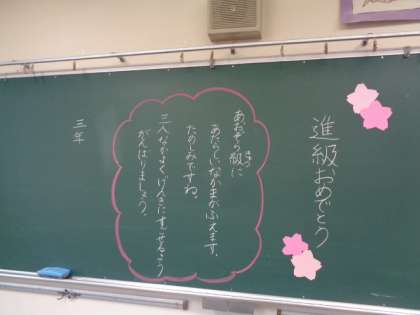 進級おめでとう
あおぞら級に
きゅう
あたらしいなかまがふえます。
たのしみですね。
三人なかよくげんきにすごせるよう
がんばりましょう。
三年